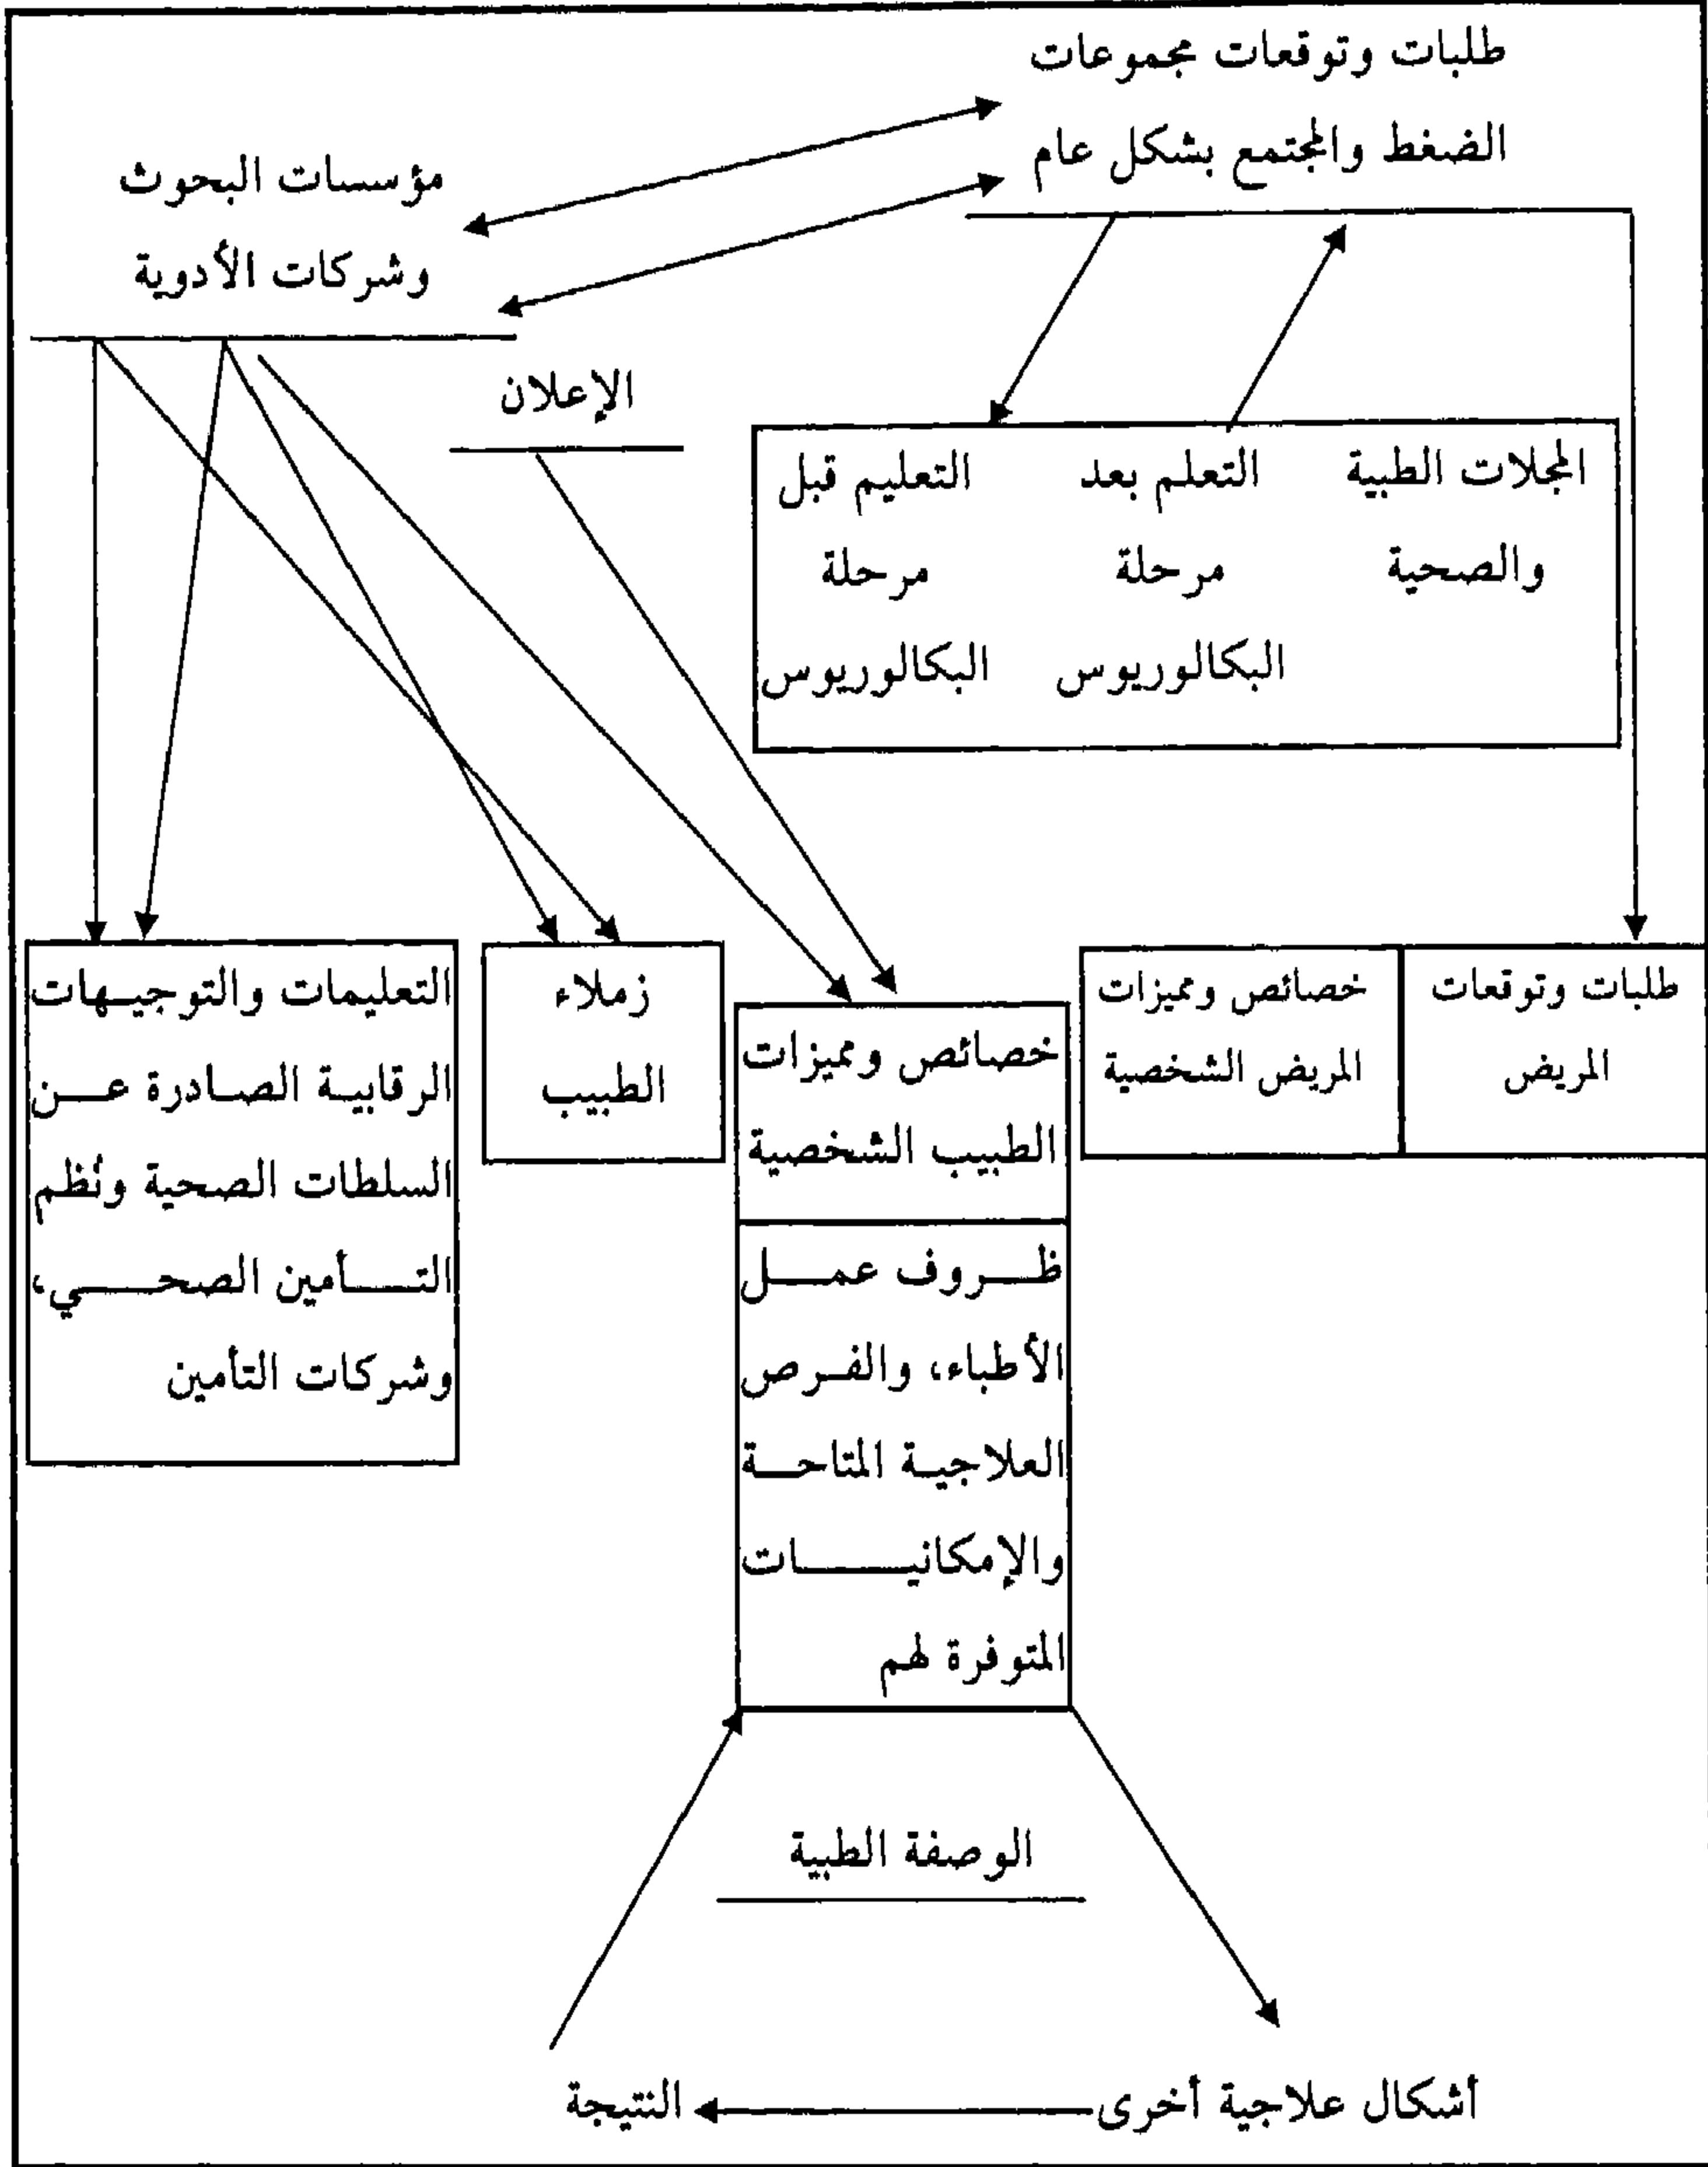 طلبات وتوقعات مجموعات
الضغط والمجتمع بشكل عام
مؤسسات البحوث
وشركات الأدوية
الإعلان
المجلات الطبية
والصحية
التعلم بعد
مرحلة
البكالوريوس
التعليم قبل
مرحلة
البكالوريوس
طلبات وتوقعات
المريض
خصائص ومميزات
المريض الشخصية
خصائص ومميزات
الطبيب الشخصية
ظروف عمل
الأطباء، والفرص
العلاجية المتاحة
والإمكانيات
المتوفرة لهم
زملاء
الطبيب
التعليمات والتوجيهات
الرقابية الصادرة عن
السلطات الصحية ونُظم
التأمين الصحي،
وشركات التأمين
الوصفة الطبية
أشكال علاجية أخرى
النتيجة